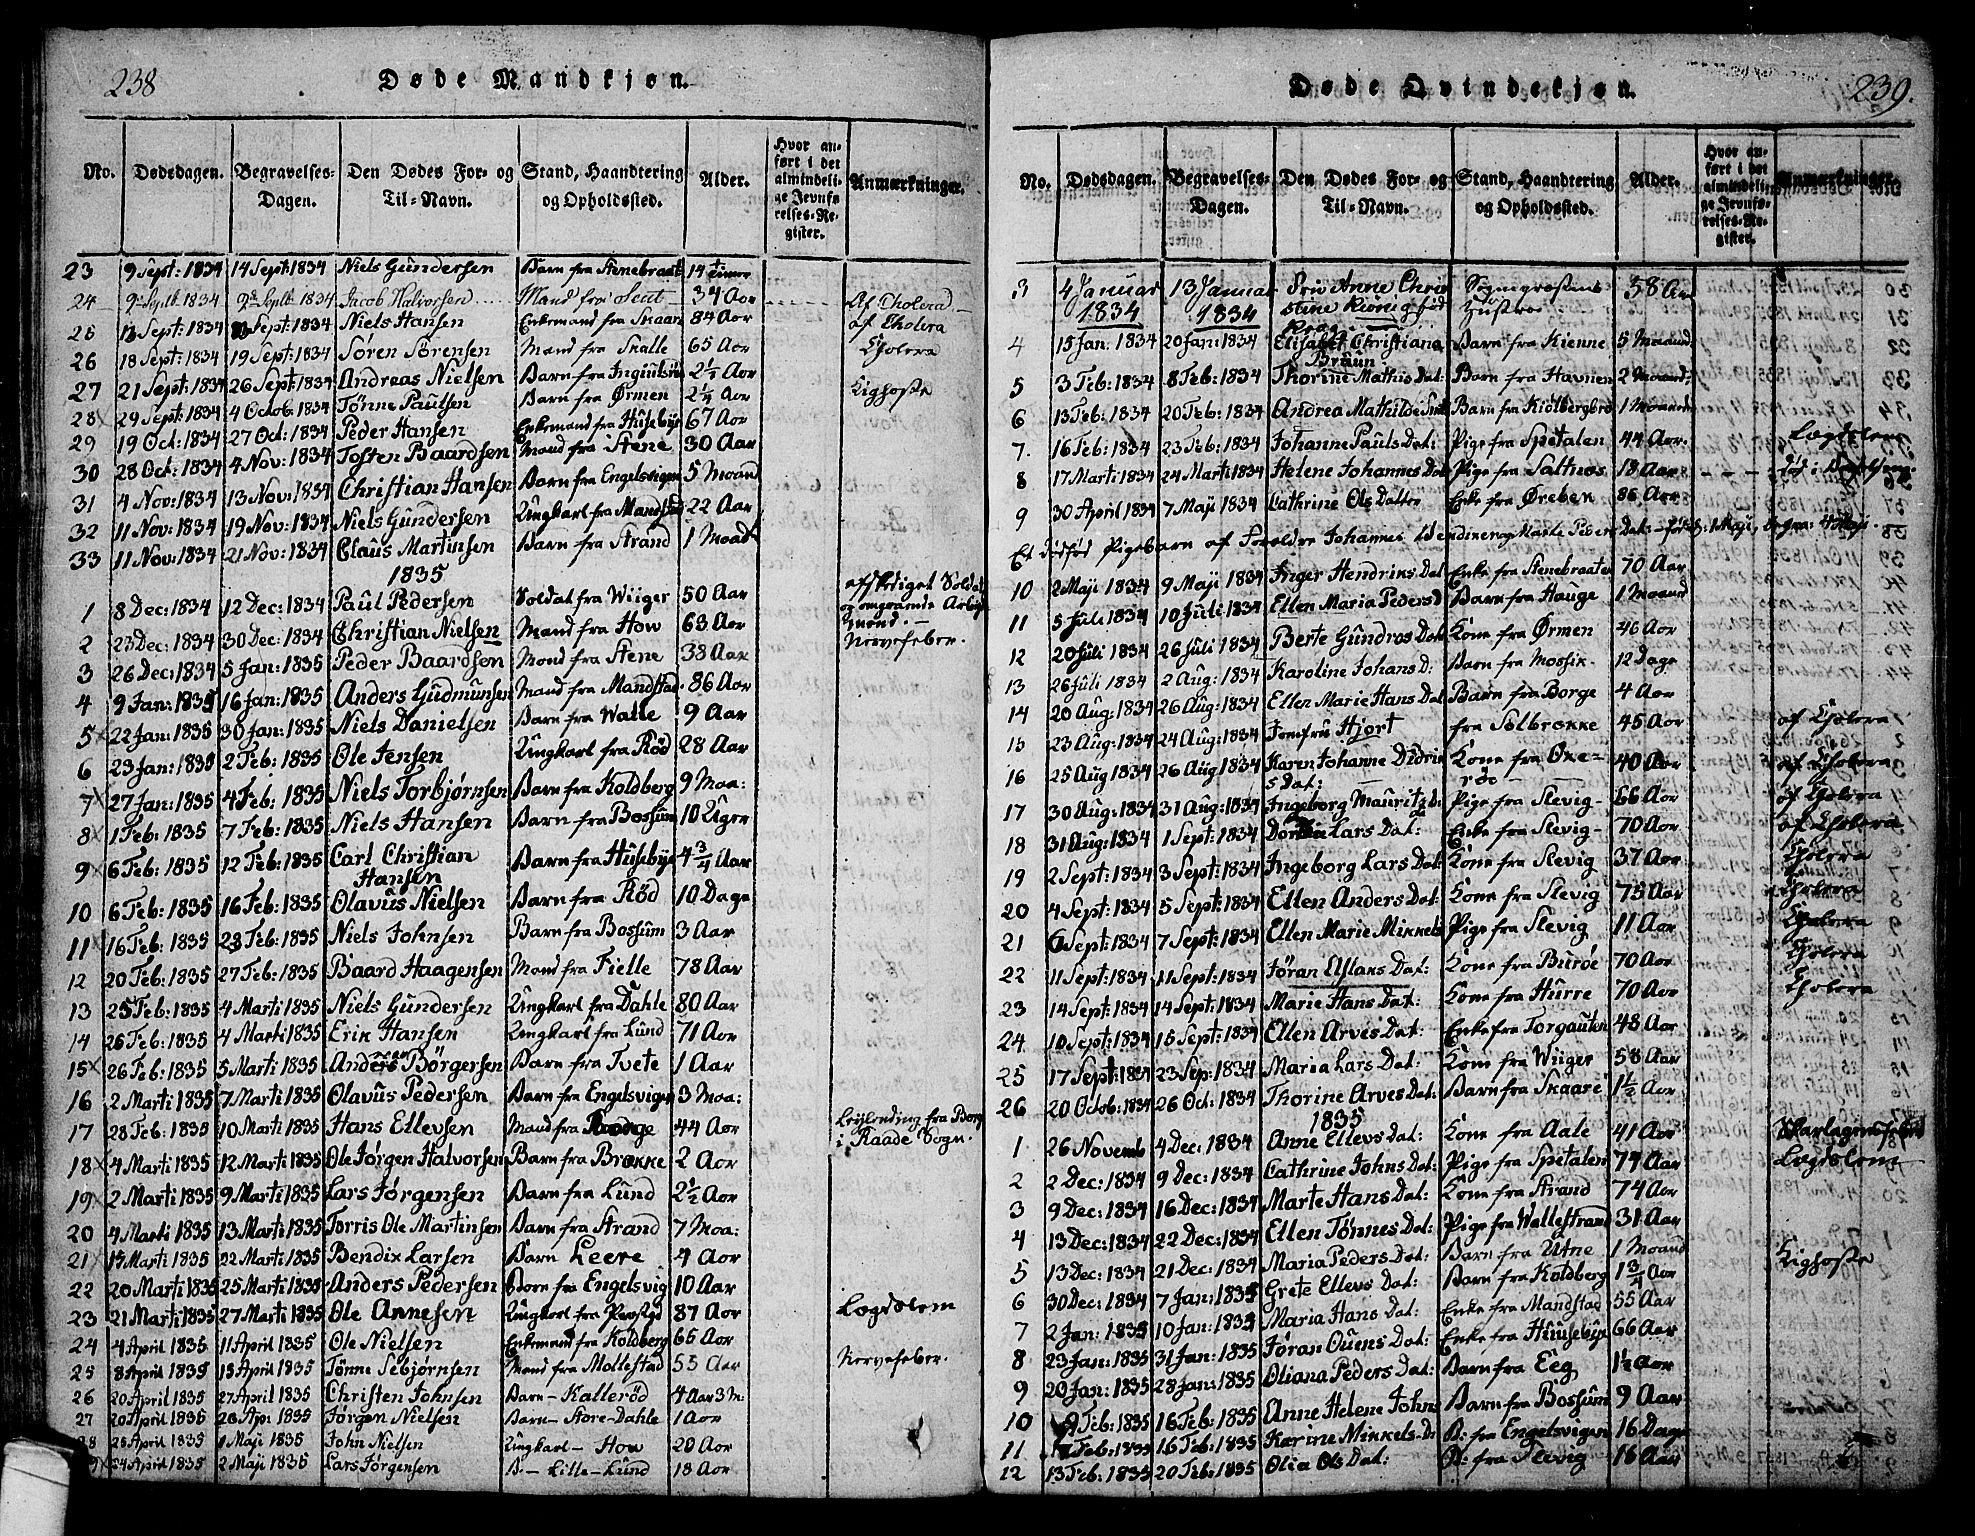 238
Døde Mandkjøn.
No. Dødsdagen. Begravelses-Dagen. Den Dødes For- og Til-Navn. Stand, Haandtering og Opholdssted. Alder. Hvor anført i det almindelige Jevnførelses-Register. Anmærkninger.
23 9 Sept: 1834 14 Sept: 1834 Niels Gundersen Barn fra Stenebraat 14 Timer
24 1834 1834 Jacob Halvorsen Mand fra 34 Aar Af Cholera
25 Sept: 1834 Sept: 1834 Niels Hansen Enkemand fra Skaare 84 Aar af Cholera
26 18 Sept: 1834 19 Sept: 1834 Søren Sørensen Mand fra Skalle 65 Aar Cholera
27 21 Sept: 1834 26 Sept: 1834 Andreas Nielsen Barn fra 2½ Aar Kighoste
28 29 Sept: 1834 4 Octob: 1834 Tønne Paulsen Barn fra Ørmen 2¼ Aar
29 19 Oct: 1834 27 Oct: 1834 Peder Hansen Enkemand fra Husebye 67 Aar
30 28 Oct: 1834 4 Nov: 1834 Tosten Baardsen Mand fra Stene 30 Aar
31 4 Nov: 1834 13 Nov: 1834 Christian Hansen Barn fra Engelsvigen 5 Maand
32 11 Nov: 1834 19 Nov: 1834 Niels Gundersen Ungkarl fra Mandstad 22 Aar
33 11 Nov: 1834 21 Nov: 1834 Claus Martinsen Barn fra Strand 1 Maad
1835
1 8 Dec: 1834 12 Dec: 1834 Paul Pedersen Soldat fra Wiiger 50 Aar afskediget Soldat
2 23 Dec: 1834 30 Dec: 1834 Christian Nielsen Mand fra How 63 Aar Nervefeber.
3 26 Dec: 1834 5 Jan: 1835 Peder Baardsen Mand fra Stene 38 Aar
4 9 Jan: 1835 16 Jan: 1835 Anders Gudmunsen Mand fra Mandstad 86 Aar
5 22 Jan: 1835 30 Jan: 1835 Niels Danielsen Barn fra Walle 9 Aar
6 23 Jan: 1835 2 Feb: 1835 Ole Jensen Ungkarl fra Rød 28 Aar
7 27 Jan: 1835 4 Feb: 1835 Niels Torbjørnsen Barn fra Koldberg 9 Moa:
8 1 Feb: 1835 7 Feb: 1835 Niels Hansen Barn fra Bossum 10 Uger
9 6 Feb: 1835 12 Feb: 1835 Carl Christian Hansen Barn fra Husebye 4¾ Aar
10 6 Feb: 1835 16 Feb: 1835 Olavus Nielsen Barn fra Rød 10 Dage
11 16 Feb: 1835 23 Feb: 1835 Niels Johnsen Barn fra Bossum 3 Aar
12 20 Feb: 1835 27 Feb: 1835 Baard Haagensen Mand fra Fielle 78 Aar
13 25 Feb: 1835 4 Marti 1835 Niels Gundersen Ungkarl fra Dahle 80 Aar
14 26 Feb: 1835 4 Marti 1835 Erik Hansen Ungkarl fra Lund 71 Aar
15 26 Feb: 1835 5 Marti 1835 Børgersen Barn fra Tvete 1 Aar
16 2 Marti 1835 7 Marti 1835 Olavus Pedersen Barn fra Engelsvigen 3 Moa:
17 28 Feb: 1835 10 Marti 1835 Hans Ellevsen Mand fra 44 Aar Leylending fra Berg i Raade Sogn.
18 4 Marti 1835 12 Marti 1835 Ole Jørgen Halvorsen Barn fra Brække 2 Aar
19 2 Marti 1835 9 Marti 1835 Lars Jørgensen Barn fra Lund 2½ Aar
20 4 Marti 1835 13 Marti 1835 Torris Ole Martinsen Barn fra Strand 7 Moa:
21 15 Marti 1835 22 Marti 1835 Bendix Larsen Barn Leere 4 Aar
22 20 Marti 1835 25 Marti 1835 Anders Pedersen Barn fra Engelsvig 10 Aar
23 21 Marti 1835 27 Marti 1835 Ole Annesen Ungkarl fra 87 Aar Lægdslem
24 4 April 1835 11 April 1835 Ole Nielsen Enkemand fra Koldberg 65 Aar
25 8 April 1835 15 April 1835 Tønne Sebjørnsen Mand fra Mollestad 53 Aar Nervefeber.
26 20 April 1835 27 April 1835 Christen Johnsen Barn – Kallerød 4 Aar 3 M:
27 20 April 1835 28 Apr: 1835 Jørgen Nielsen Barn – Store-Dahle 1 Aar
28 25 April 1835 1 Maji 1835 John Nielsen Ungkarl – How 20 Aar
24 April 1835 2 Maji 1835 Lars Jørgensen B – Lille-Lund 18 Aar
239.
Døde Qvindekjøn.
No. Dødsdagen. Begravelses-Dagen. Den Dødes For- og Til-Navn. Stand, Haandtering og Opholdssted. Alder. Hvor anført i det almindelige Jevnførelses-Register. Anmærkninger.
3 4 Januar 1834 13 Januar 1834 Anne Christine født Sognepræstens Hustroe 58 Aar
4 15 Jan: 1834 20 Jan: 1834 Elisabet Christiana Bruun Barn fra Kienne 5 Maand
5 3 Feb: 1834 8 Feb: 1834 Thorine Mathis Dat: Barn fra Havnen 2 Maand:
6 13 Feb: 1834 20 Feb: 1834 Andrea Mathilde Barn fra Kiølbergbro 1 Maaned
7. 16 Feb: 1834 23 Feb: 1834 Johanne Pauls Dat: Pige fra Spetalen 44 Aar. Lægdslem
8 17 Marti 1834 24 Marti 1834 Helene Johannes Dat Pige fra Saltnæs 18 Aar
9 30 April 1834 7 Maji 1834 Cathrine Ols Datter Enke fra Øreben 86 Aar
Et dødfød Pigebarn af Forældre Johannes og Marthe Peders Dat: – født: 1 Maji, begra: 4 Maji.
10 2 Maji 1834 9 Maji 1834 Inger Hendriks Dat Enke fra Stenebraaten 70 Aar
11 5 Juli 1834 10 Juli 1834 Ellen Maria Peders D Barn fra Hauge 1 Maand
12 20 Juli 1834 26 Juli 1834 Berte Gundros Dat Kone fra Ørmen 46 Aar
13 26 Juli 1834 2 Aug: 1834 Karoline Johans D: Barn fra Mossik. 12 Dage
14 20 Aug: 1834 26 Aug: 1834 Ellen Marie Hans Dat Barn fra Borge 4 Aar
15 23 Aug: 1834 24 Aug: 1834 Jomfru Hjort fra Solbrække 45 Aar af Cholera
16 25 Aug 1834 26 Aug 1834 Karen Johanne Didriks Dat: Kone fra Øxerøe 40 Aar af Cholera
17 30 Aug: 1834 31 Aug: 1834 Ingeborg Mauritz D: Pige fra Slevig – 66 Aar af Cholera
18 31 Aug: 1834 1 Sept: 1834 Lars Dat: Enke fra Slevig – 70 Aar af Cholera
19 2 Sept: 1834 3 Sept: 1834 Ingeborg Lars Dat: Kone fra Slevig 37 Aar Cholera
20 4 Sept: 1834 5 Sept: 1834 Ellen Anders Dat: Kone fra Slevig 75 Aar Cholera
21 6 Sept: 1834 7 Sept: 1834 Ellen Marie Mikkels Pige fra Slevig 11 Aar Cholera
22 11 Sept: 1834 11 Sept: 1834 Jøran Elslaks Dat: Kone fra Burøe 70 Aar Cholera
23 14 Sept: 1834 14 Sept: 1834 Marie Hans Dat: Kone fra Hurre 70 Aar Cholera
24 10 Sept: 1834 15 Sept: 1834 Ellen Arves Dat: Enke fra Torgauten 48 Aar
25 17 Sept: 1834 23 Sep: 1834 Maria Lars Dat: Kone fra Wiiger 58 Aar
26 20 Octob: 1834 26 Oct: 1834 Thorine Arves Dat: Barn fra Skaare 1½ Aar
1835
1 26 Novemb 4 Dec: 1834 Anne Ellevs Dat: Kone fra Aale 41 Aar Skarlagensfeber
2 2 Dec: 1834 9 Dec: 1834 Cathrine Johns Dat: Pige fra Spetalen 74 Aar Lægdslem
3 9 Dec: 1834 16 Dec: 1834 Marte Hans Dat: Kone fra Strand 74 Aar
4 13 Dec: 1834 22 Dec: 1834 Ellen Tønnes Dat: Pige fra Wallestrand 31 Aar
5 13 Dec: 1834 21 Dec: 1834 Maria Peders Dat: Barn fra Utne 1 Maand Kighoste
6 30 Dec: 1834 7 Jan: 1835 Grete Ellevs Dat: Barn fra Koldberg 1¾ Aar
7 2 Jan: 1835 10 Jan: 1835 Maria Hans Dat: Enke fra Mandstad 55 Aar
8 23 Jan: 1835 31 Jan: 1835 Jøran Ouens Dat: Enke fra Huusebye 66 Aar
9 20 Jan: 1835 28 Jan: 1835 Oliana Peders Dat: Barn fra Eeg 1½ Aar
10 9 Feb: 1835 16 Feb: 1835 Anne Helene Johns Barn fra Bossum 9 Aar
11 Feb: 1835 16 Feb: 1835 Karine Mikkels-D: B: fra Engelsvigen 16 Dage
12 13 Feb: 1835 20 Feb: 1835 Olia Ols Dat: B: fra Slevig 16 Aar